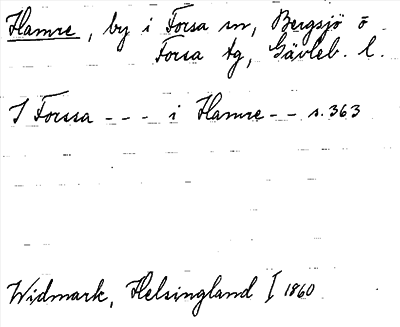 Hamre, by i Forsa sn, Bergsjö o
Forsa tg, Gävleb. l.
I Forssa - - - i Hamre - - s. 363
Widmark, Helsingland I 1860